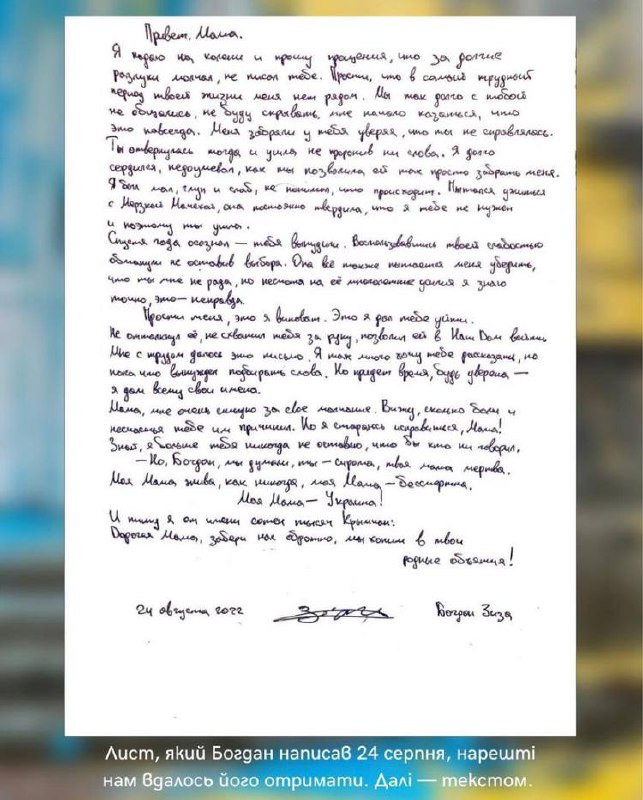 Привет, Мама.
Я падаю на колени и прошу прощения, что за долгие
разлуки молчал, не писал тебе. Прости, что в самый трудный
период твоей жизни меня нет рядом. Мы так долго с тобой
не обнимались, не буду скрывать, мне начало казаться, что
это навсегда. Меня забрали у тебя уверяя, что ты не справлялась.
Ты отвернулась тогда и ушла, не проронив ни слова. Я долго
сердился, недоумевал, как ты позволила ей так просто забрать меня.
Я был мал, глуп и слаб, не понимал, что происходит. Пытался ужиться
с Мерзкой Мачехой, она постоянно твердила, что я тебе не нужен
и поэтому ты ушла.
Спустя года осознал — тебя вынудили. Воспользовавшись твоей слабостью
обманули не оставив выбора. Она всё также пытается меня убедить,
что ты мне не рада, но несмотя на её многолетние усилия я знаю
точно, это — неправда.
Прости меня, это я виноват. Это я дал тебе уйти.
Не оттолкнул её, не схватил тебя за руку, позволил ей в Наш Дом войти.
Мне с трудом далось это письмо. Я так много хочу тебе рассказать, но
пока что вынужден подбирать слова. Но придет время, будь уверена —
я дам всему свои имена.
Мама, мне очень стыдно за свое молчание. Вижу, сколько боли и
несчастья тебе им причинил. Но я стараюсь исправиться, Мама!
Знай, я больше тебя никогда не оставлю, что бы кто ни говорил.
— Но, Богдан, мы думали, ты — сирота, твоя мама мертва.
Моя Мама жива, как никогда, моя Мама — бессмертна.
Моя Мама — Украина!
И пишу я от имени сотен тысяч Крымчан:
Дорогая Мама, забери нас обратно, мы хотим в твои
родные объятия!
24 августа 2022 Богдан Зиза
Лист, який Богдан написав 24 серпня, нарешті
нам вдалось його отримати. Далі — текстом.